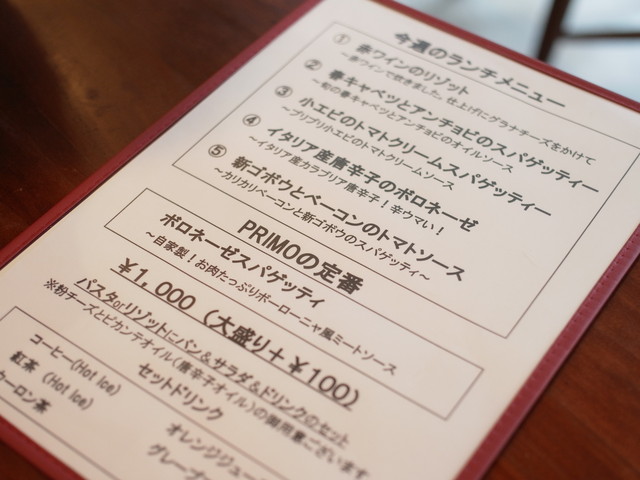 今週のランチメニュー
① 赤ワインのリゾット
～赤ワインで炊きました。仕上げにグラナチーズをかけて
② 春キャベツとアンチョビのスパゲッティー
～旬の春キャベツとアンチョビのオイルソース
③ 小エビのトマトクリームスパゲッティー
～プリプリ小エビのトマトクリームソース
④ イタリア産唐辛子のボロネーゼ
～イタリア産カラブリア唐辛子！辛ウマい！
⑤ 新ゴボウとベーコンのトマトソース
～カリカリベーコンと新ゴボウのスパゲッティ～
PRIMOの定番
ボロネーゼスパゲッティ
～自家製！お肉たっぷりボローニャ風ミートソース
￥1,000（大盛り＋￥100）
パスタorリゾットにパン&サラダ&ドリンクのセット
※粉チーズとピカンテオイル（唐辛子オイル）の御用意ございます
セットドリンク
コーヒー(Hot Ice)
紅茶 (Hot Ice)
ウーロン茶
オレンジジュー
グレープ